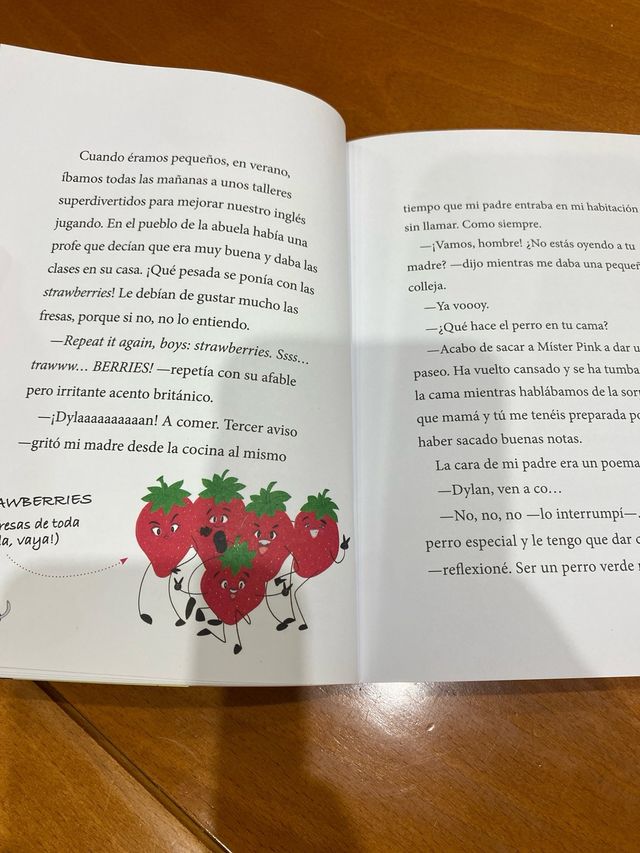 Cuando éramos pequeños, en verano,
íbamos todas las mañanas a unos talleres
superdivertidos para mejorar nuestro inglés
jugando. En el pueblo de la abuela había una
profe que decían que era muy buena y daba las
clases en su casa. ¡Qué pesada se ponía con las
strawberries! Le debían de gustar mucho las
fresas, porque si no, no lo entiendo.
—Repeat it again, boys: strawberries. Ssss…
trawww… BERRIES! —repetía con su afable
pero irritante acento británico.
—¡Dylaaaaaaaaan! A comer. Tercer aviso
—gritó mi madre desde la cocina al mismo
AWBERRIES
resas de toda
a, vaya!)
tiempo que mi padre entraba en mi habitación
sin llamar. Como siempre.
—¡Vamos, hombre! ¿No estás oyendo a tu
madre? —dijo mientras me daba una pequeñ
colleja.
—Ya voooy.
—¿Qué hace el perro en tu cama?
—Acabo de sacar a Míster Pink a dar u
paseo. Ha vuelto cansado y se ha tumba
la cama mientras hablábamos de la sor
que mamá y tú me tenéis preparada po
haber sacado buenas notas.
La cara de mi padre era un poema
—Dylan, ven a co…
—No, no, no —lo interrumpí—.
perro especial y le tengo que dar c
—reflexioné. Ser un perro verde